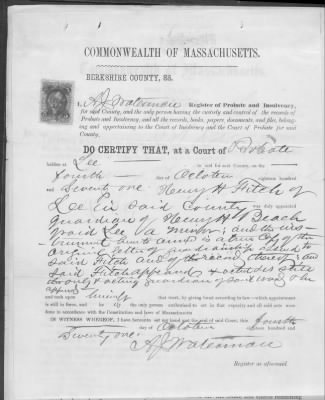 COMMONWEALTH OF MASSACHUSETTS.
BERKSHIRE COUNTY, SS.
I, A J Waterman Register of Probate and Insolvency,
for said County, and the only person having the custody and control of the records
of Probate and Insolvency, and all the records, books, papers, documents, and files, belong-
ing and appertaining to the Court of Insolvency and the Court of Probate for said
County.
DO CERTIFY THAT, at a Court of Probate
holden at Lee in said for said County, on the
fourth day of October eighteen hundred
and Seventy one Henry H Fitch of
Lee in said County was duly appointed
guardian of Henry H Beach
of said Lee a minor, and the ins-
trument hereto annexed is a true Copy of the
original letter of guardianship issued to
said Fitch and of the record thereof and
said Fitch appears
only & acting guardian of said ward
and such upon that trust, by giving bond according to law—which appointment
is still in force, and is the only person authorized to act in that capacity and all said acts were done in
accordance with the Constitution and laws of Massachusetts
IN WITNESS WHEREOF, I have hereunto set my hand and the seal of said Court, this fourth
day of October eighteen hundred and
Seventy one.
A J Waterman
Register as aforesaid.